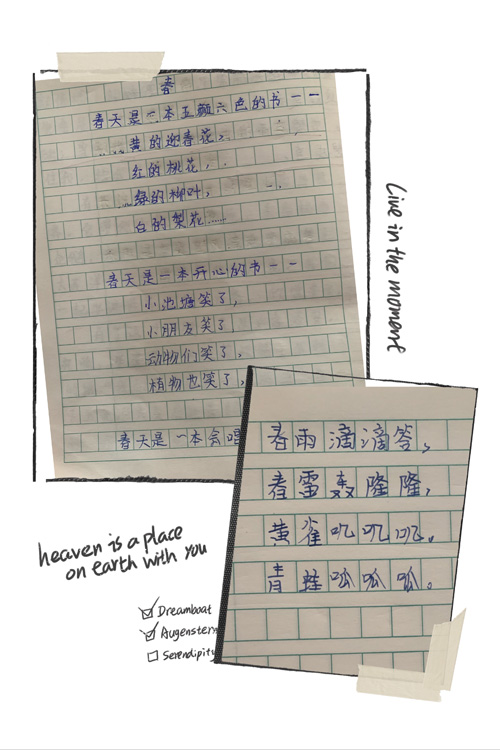 春
春天是一本五颜六色的书一一
黄的迎春花,
红的桃花,
绿的柳叶,
白的梨花……
春天是一本开心的书一一
小池塘笑了,
小朋友笑了
动物们笑了,
植物也笑了,
春天是一本会唱
春雨滴滴答,
春雷轰隆隆,
黄雀叽叽叽,
青蛙呱呱呱。
Live in the moment
heaven is a place
on earth with you
Dreamboat
Augenstern
Serendipity